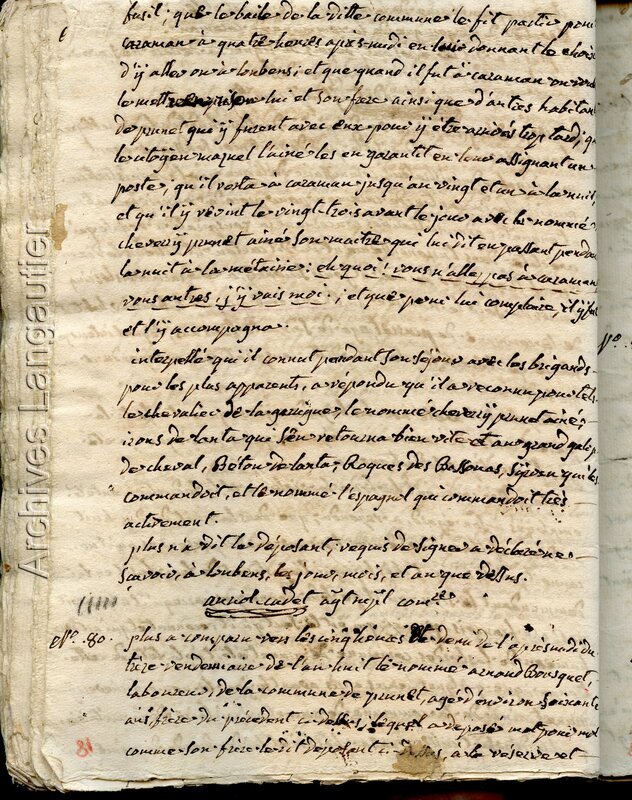 fusil; que le baile de la ditte commune le fit partir pour
caraman à quatre heures après midi en lui donnant le choix
d'y aller ou à loubens; et que quand il fut à caraman on
le mettre en prison lui et son frère ainsi que d'autres habitans
de prunet qui y furent avec eux pour y être arrivés trop tard; q
le citoyen maruel l'ainé les en garantit en leur assignant un
poste; qu'il resta à caraman jusqu'au vingt et un à la nuit,
et qu'il y revint le vingt-trois avant le jour avec le nommé
chevery prunet ainé son maitre qui lui dit en passant penda
la nuit à la métairie: eh quoi! vous n'allez pas à caraman
vous autres; j'y vais moi.; et que pour lui complaire, il y fu
et l'y accompagna.
interpellé qui il connut pendant son séjour avec les brigands
pour les plus apparents, a répondu qu'il a reconnu pour tels
le chevalier de la garrigue, le nommé chevery prunet ainé,
irons de lanta qui s'en retourna bien vite et au grand galop
de cheval, Béton de lanta, Roques des Bassonas, qui les
commandoit, et le nommé l'espagnol qui commandoit très
activement.
plus n'a dit le déposant, requis de signer a déclaré ne
savoir, à loubens, les jour, mois, et an que dessus.
cadet
N°. 80. plus a comparu vers les cinq heures et demi de l'après midi du
treze vendemiaire de l'an huit le nommé arnaud Bousquet,
laboureur, de la commune de prunet, agé d'environ soixante
ans, frère du précédent ci dessus, lequel a déposé mot pour mot
comme son frère le dit déposant ci dessus, à la réserve et
81
Archives Langautier